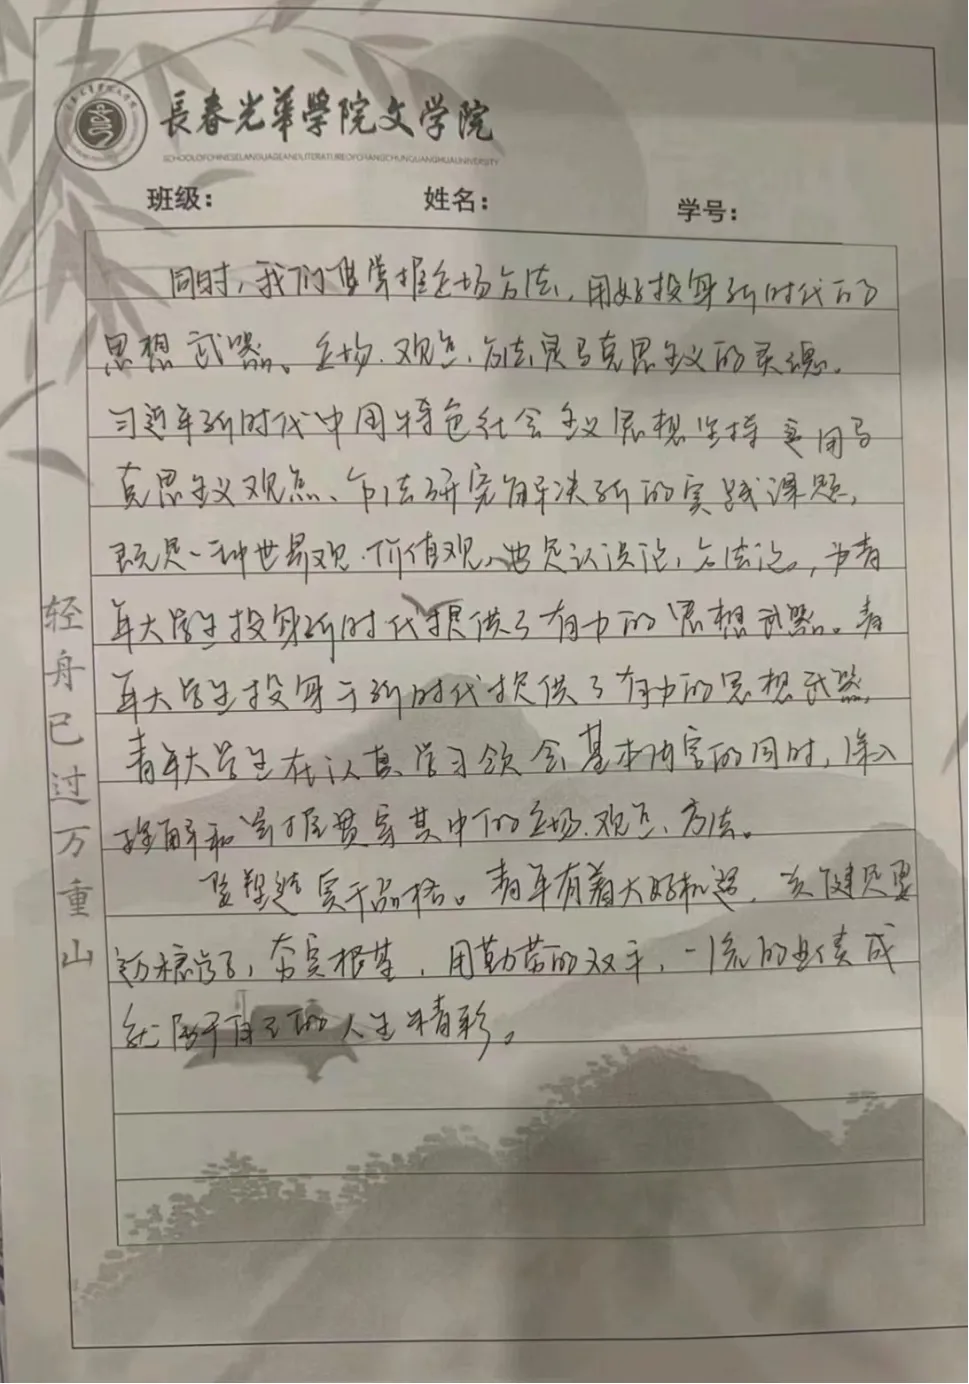 長春光華學院文学院
SCHOOLOFCHINESELANGUAGEANDLITERATUREOFCHANGCHUNGUANGHUAUNIVERSITY
班级：
姓名：
学号：
同时，我们要掌握立场方法，用好投身新时代的
思想武器。立场、观点、方法是马克思主义的灵魂。
习近平新时代中国特色社会主义思想坚持运用马
克思主义观点、方法研究解决新的实践课题，
既是一种世界观、价值观，也是认识论，方法论。，为青
年大学生投身新时代提供了有力的思想武器。青
年大学生投身于新时代提供了有力的思想武器，
青年大学生在认真学习领会基本内容的同时，深入
理解和掌握贯穿其中的立场、观点、方法。
塑造实干品格。青年有着大好机遇，关键是要
迈稳步子，夯实根基，用勤劳的双手，一流的业绩成
就属于自己的人生精彩。
轻舟已过万重山